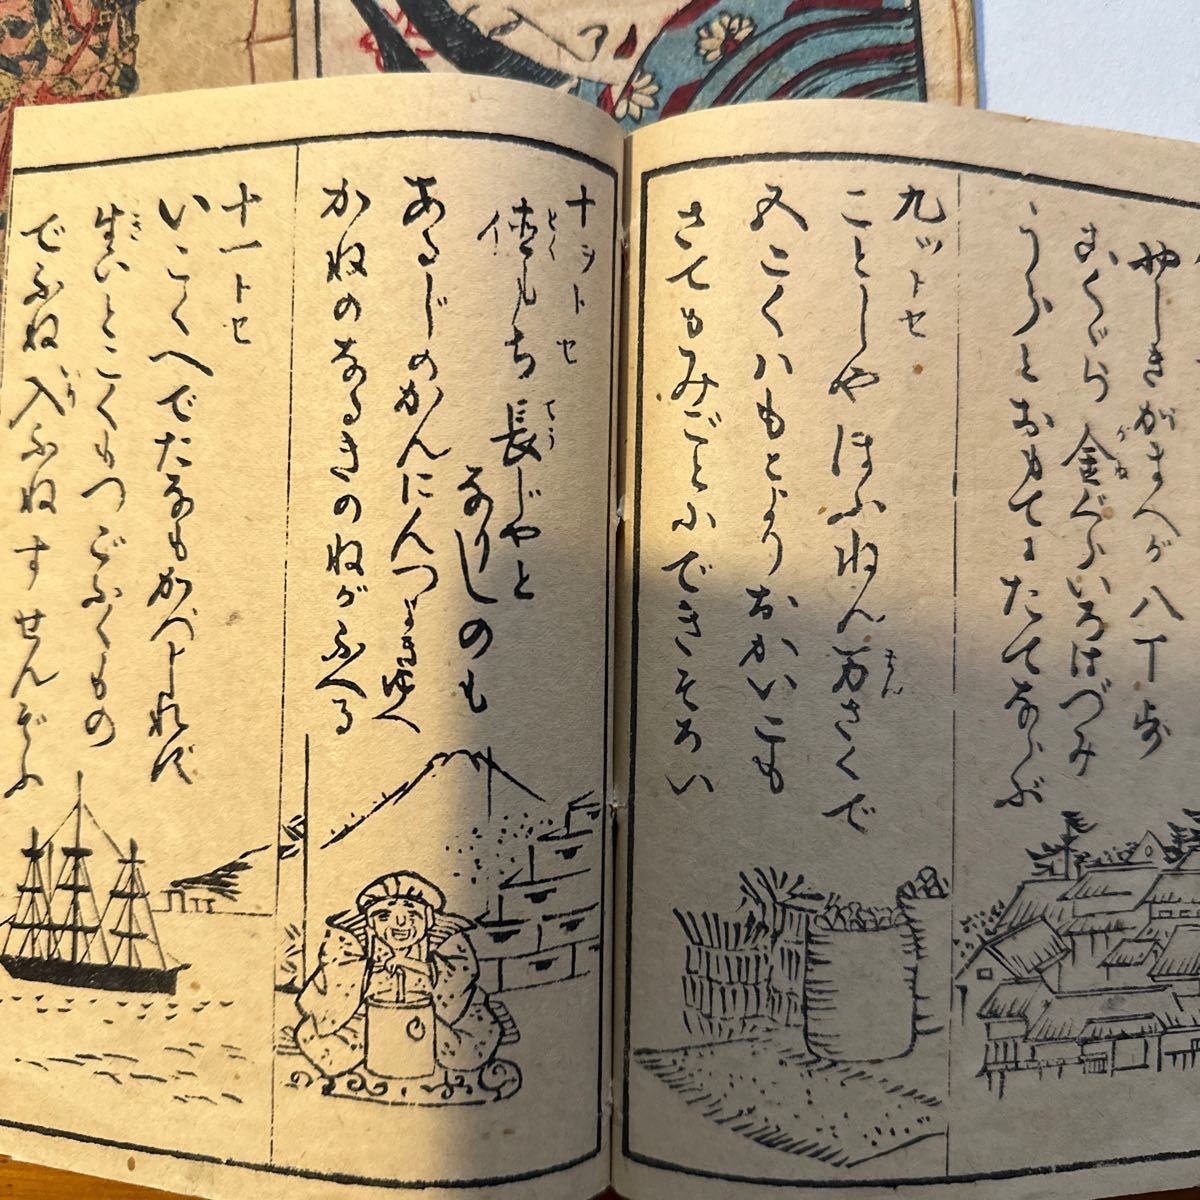 やしきがまへが八丁歩
こくぐら金ぐらいろはづみ
うらとおもてにたてならぶ
九ツトセ
ことしやほふねん万さくで
五こくハもとよりおかいこも
さてもみごとにできそろい
十ヲトセ
徳もち長じやと
なりしのも
あるじのかんにんつよきゆへ
かねのなるきのねがふへる
十一トセ
いこくへでたなもかへつしれば
生いとこくもつごふくもの
でふね入ふねすせんぞふ